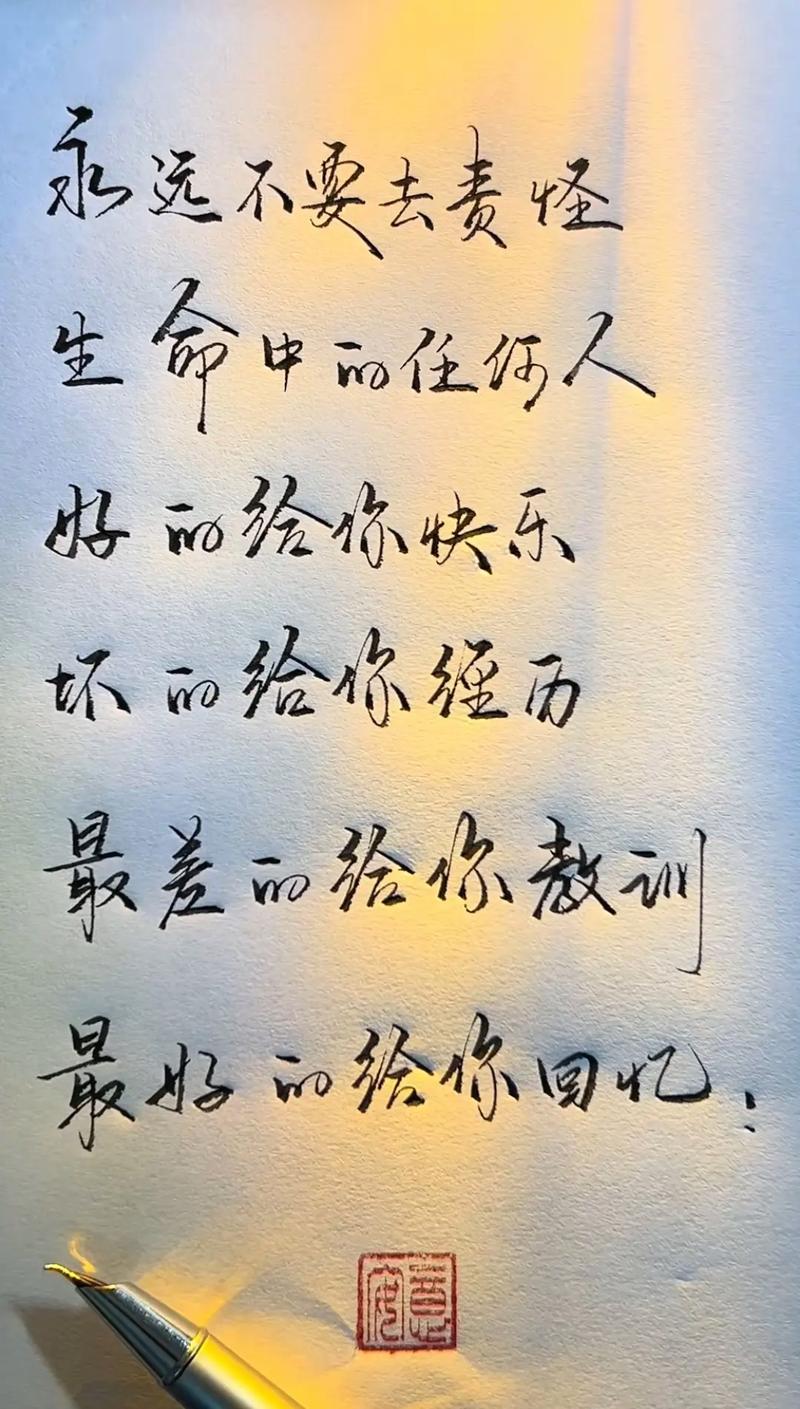 永远不要去责怪
生命中的任何人
好的给你快乐
坏的给你经历
最差的给你教训
最好的给你回忆: